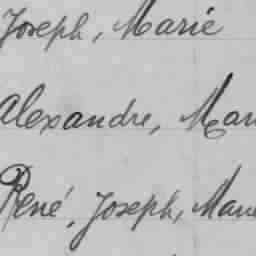 Joseph, Marie
Alexandre, Mar
René, Joseph, Marie